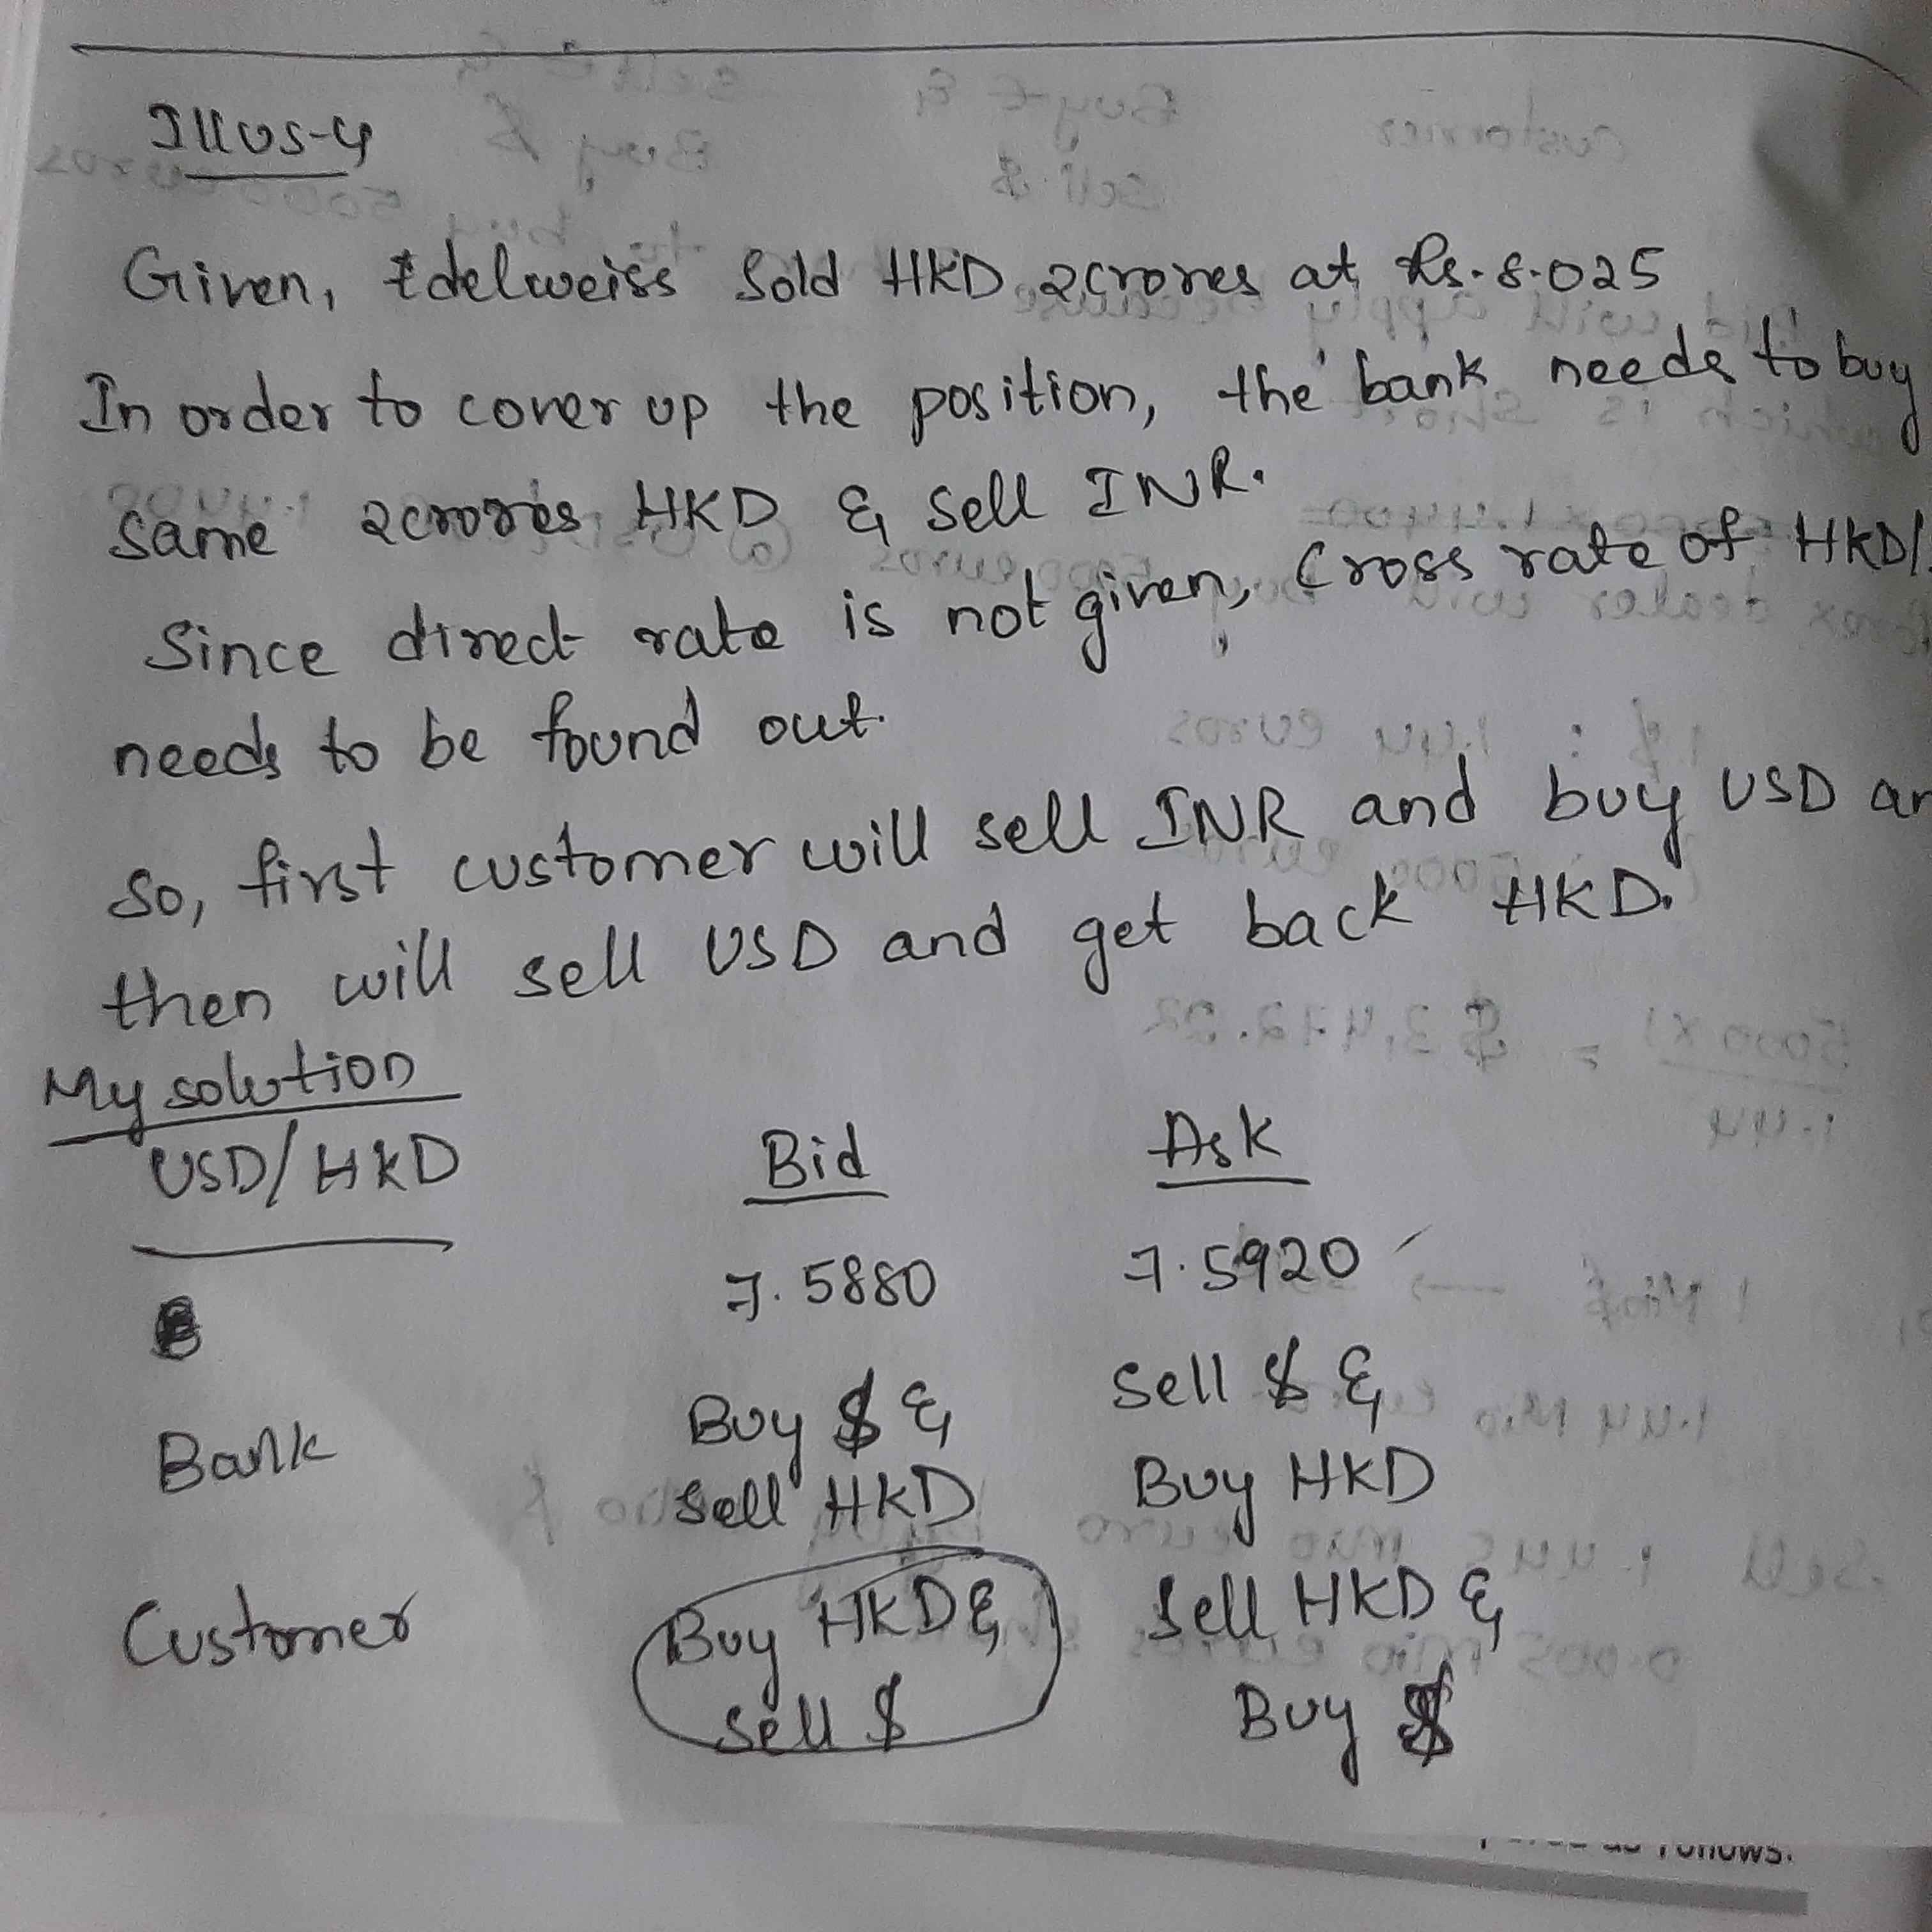 Illus-4
Given, Edelweiss sold HKD 2crores at Rs. 8.025
In order to cover up the position, the bank needs to buy
same 2crores HKD & sell INR.
Since direct rate is not given, Cross rate of HKD/
needs to be found out.
so, first customer will sell INR and buy USD an
then will sell USD and get back HKD.
My solution
USD/HKD Bid Ask
7.5880 7.5920
Bank Buy $ & Sell $ &
Sell HKD Buy HKD
Customer Buy HKD & Sell HKD &
Sell $ Buy $
follows.